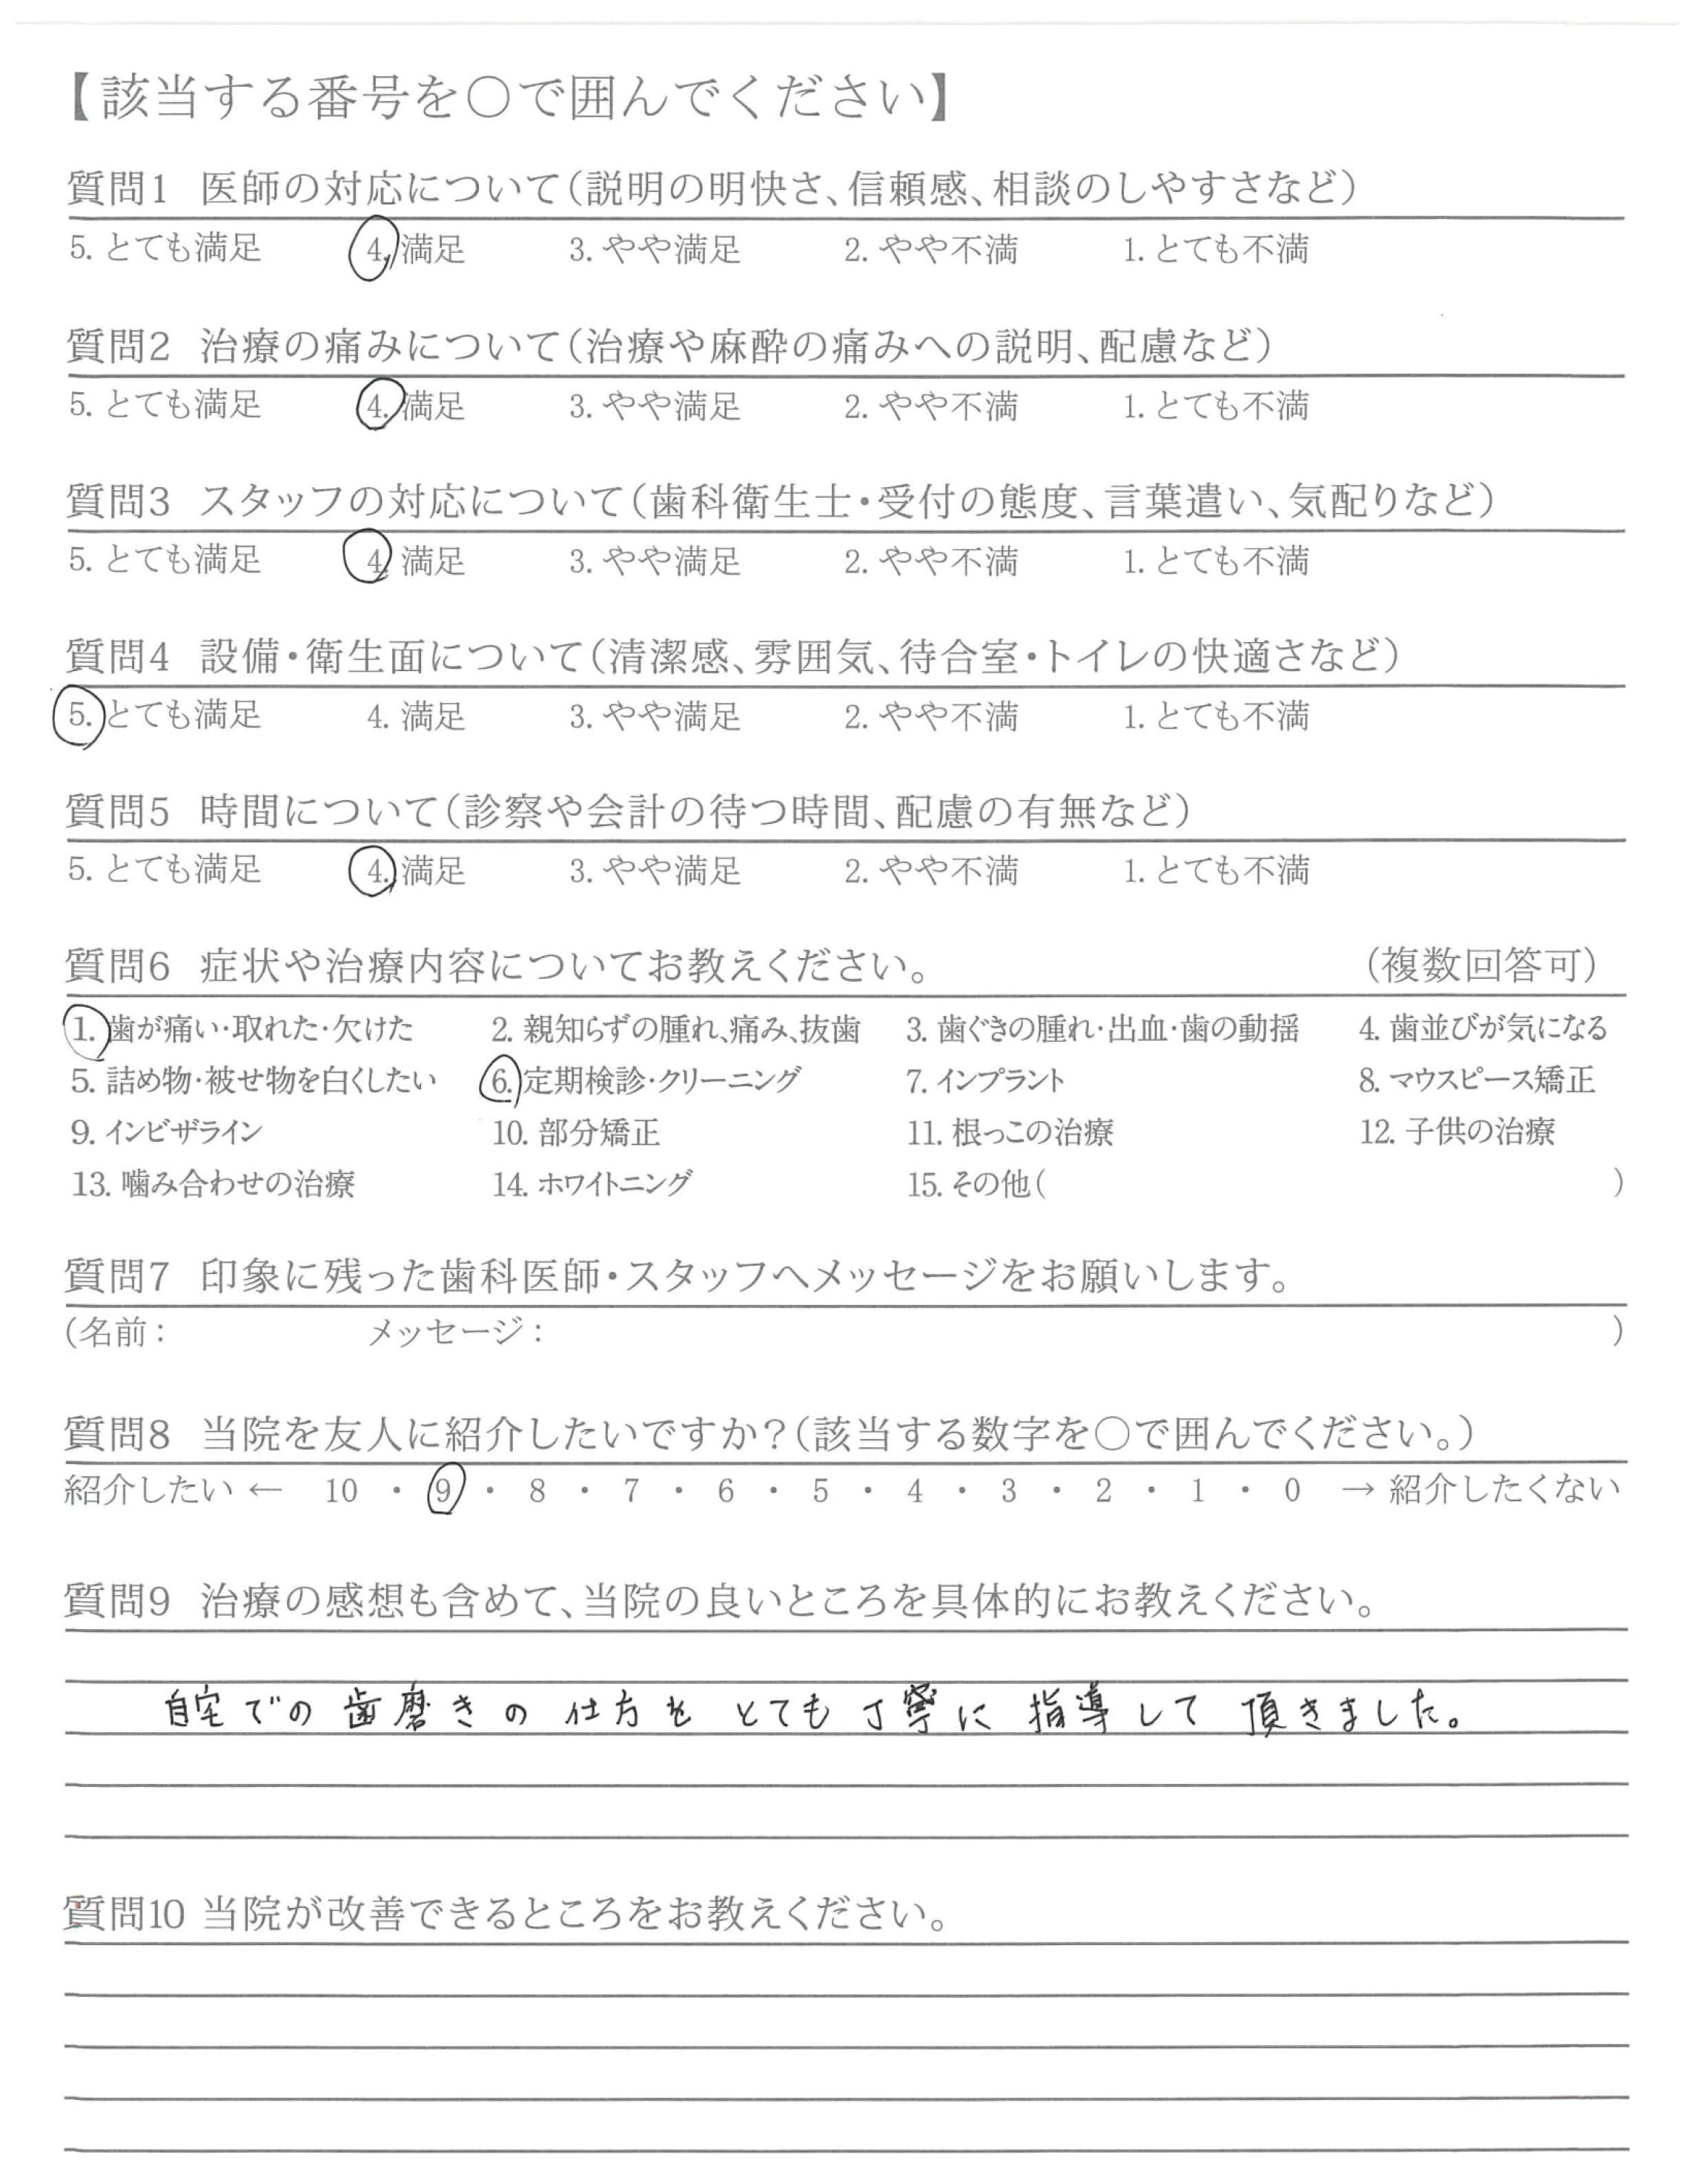 【該当する番号を○で囲んでください】
質問1 医師の対応について(説明の明快さ、信頼感、相談のしやすさなど)
5. とても満足 4. 満足 3. やや満足 2. やや不満 1. とても不満
質問2 治療の痛みについて(治療や麻酔の痛みへの説明、配慮など)
5. とても満足 4. 満足 3. やや満足 2. やや不満 1. とても不満
質問3 スタッフの対応について(歯科衛生士・受付の態度、言葉遣い、気配りなど)
5. とても満足 4. 満足 3. やや満足 2. やや不満 1. とても不満
質問4 設備・衛生面について(清潔感、雰囲気、待合室・トイレの快適さなど)
5. とても満足 4. 満足 3. やや満足 2. やや不満 1. とても不満
質問5 時間について(診察や会計の待つ時間、配慮の有無など)
5. とても満足 4. 満足 3. やや満足 2. やや不満 1. とても不満
質問6 症状や治療内容についてお教えください。 (複数回答可)
1. 歯が痛い・取れた・欠けた 2. 親知らずの腫れ、痛み、抜歯 3. 歯ぐきの腫れ・出血・歯の動揺 4. 歯並びが気になる
5. 詰め物・被せ物を白くしたい 6. 定期検診・クリーニング 7. インプラント 8. マウスピース矯正
9. インビザライン 10. 部分矯正 11. 根っこの治療 12. 子供の治療
13. 噛み合わせの治療 14. ホワイトニング 15. その他( )
質問7 印象に残った歯科医師・スタッフへメッセージをお願いします。
(名前: メッセージ: )
質問8 当院を友人に紹介したいですか?(該当する数字を○で囲んでください。)
紹介したい ← 10 ・ 9 ・ 8 ・ 7 ・ 6 ・ 5 ・ 4 ・ 3 ・ 2 ・ 1 ・ 0 → 紹介したくない
質問9 治療の感想も含めて、当院の良いところを具体的にお教えください。
自宅での歯磨きの仕方をとても丁寧に指導して頂きました。
質問10 当院が改善できるところをお教えください。